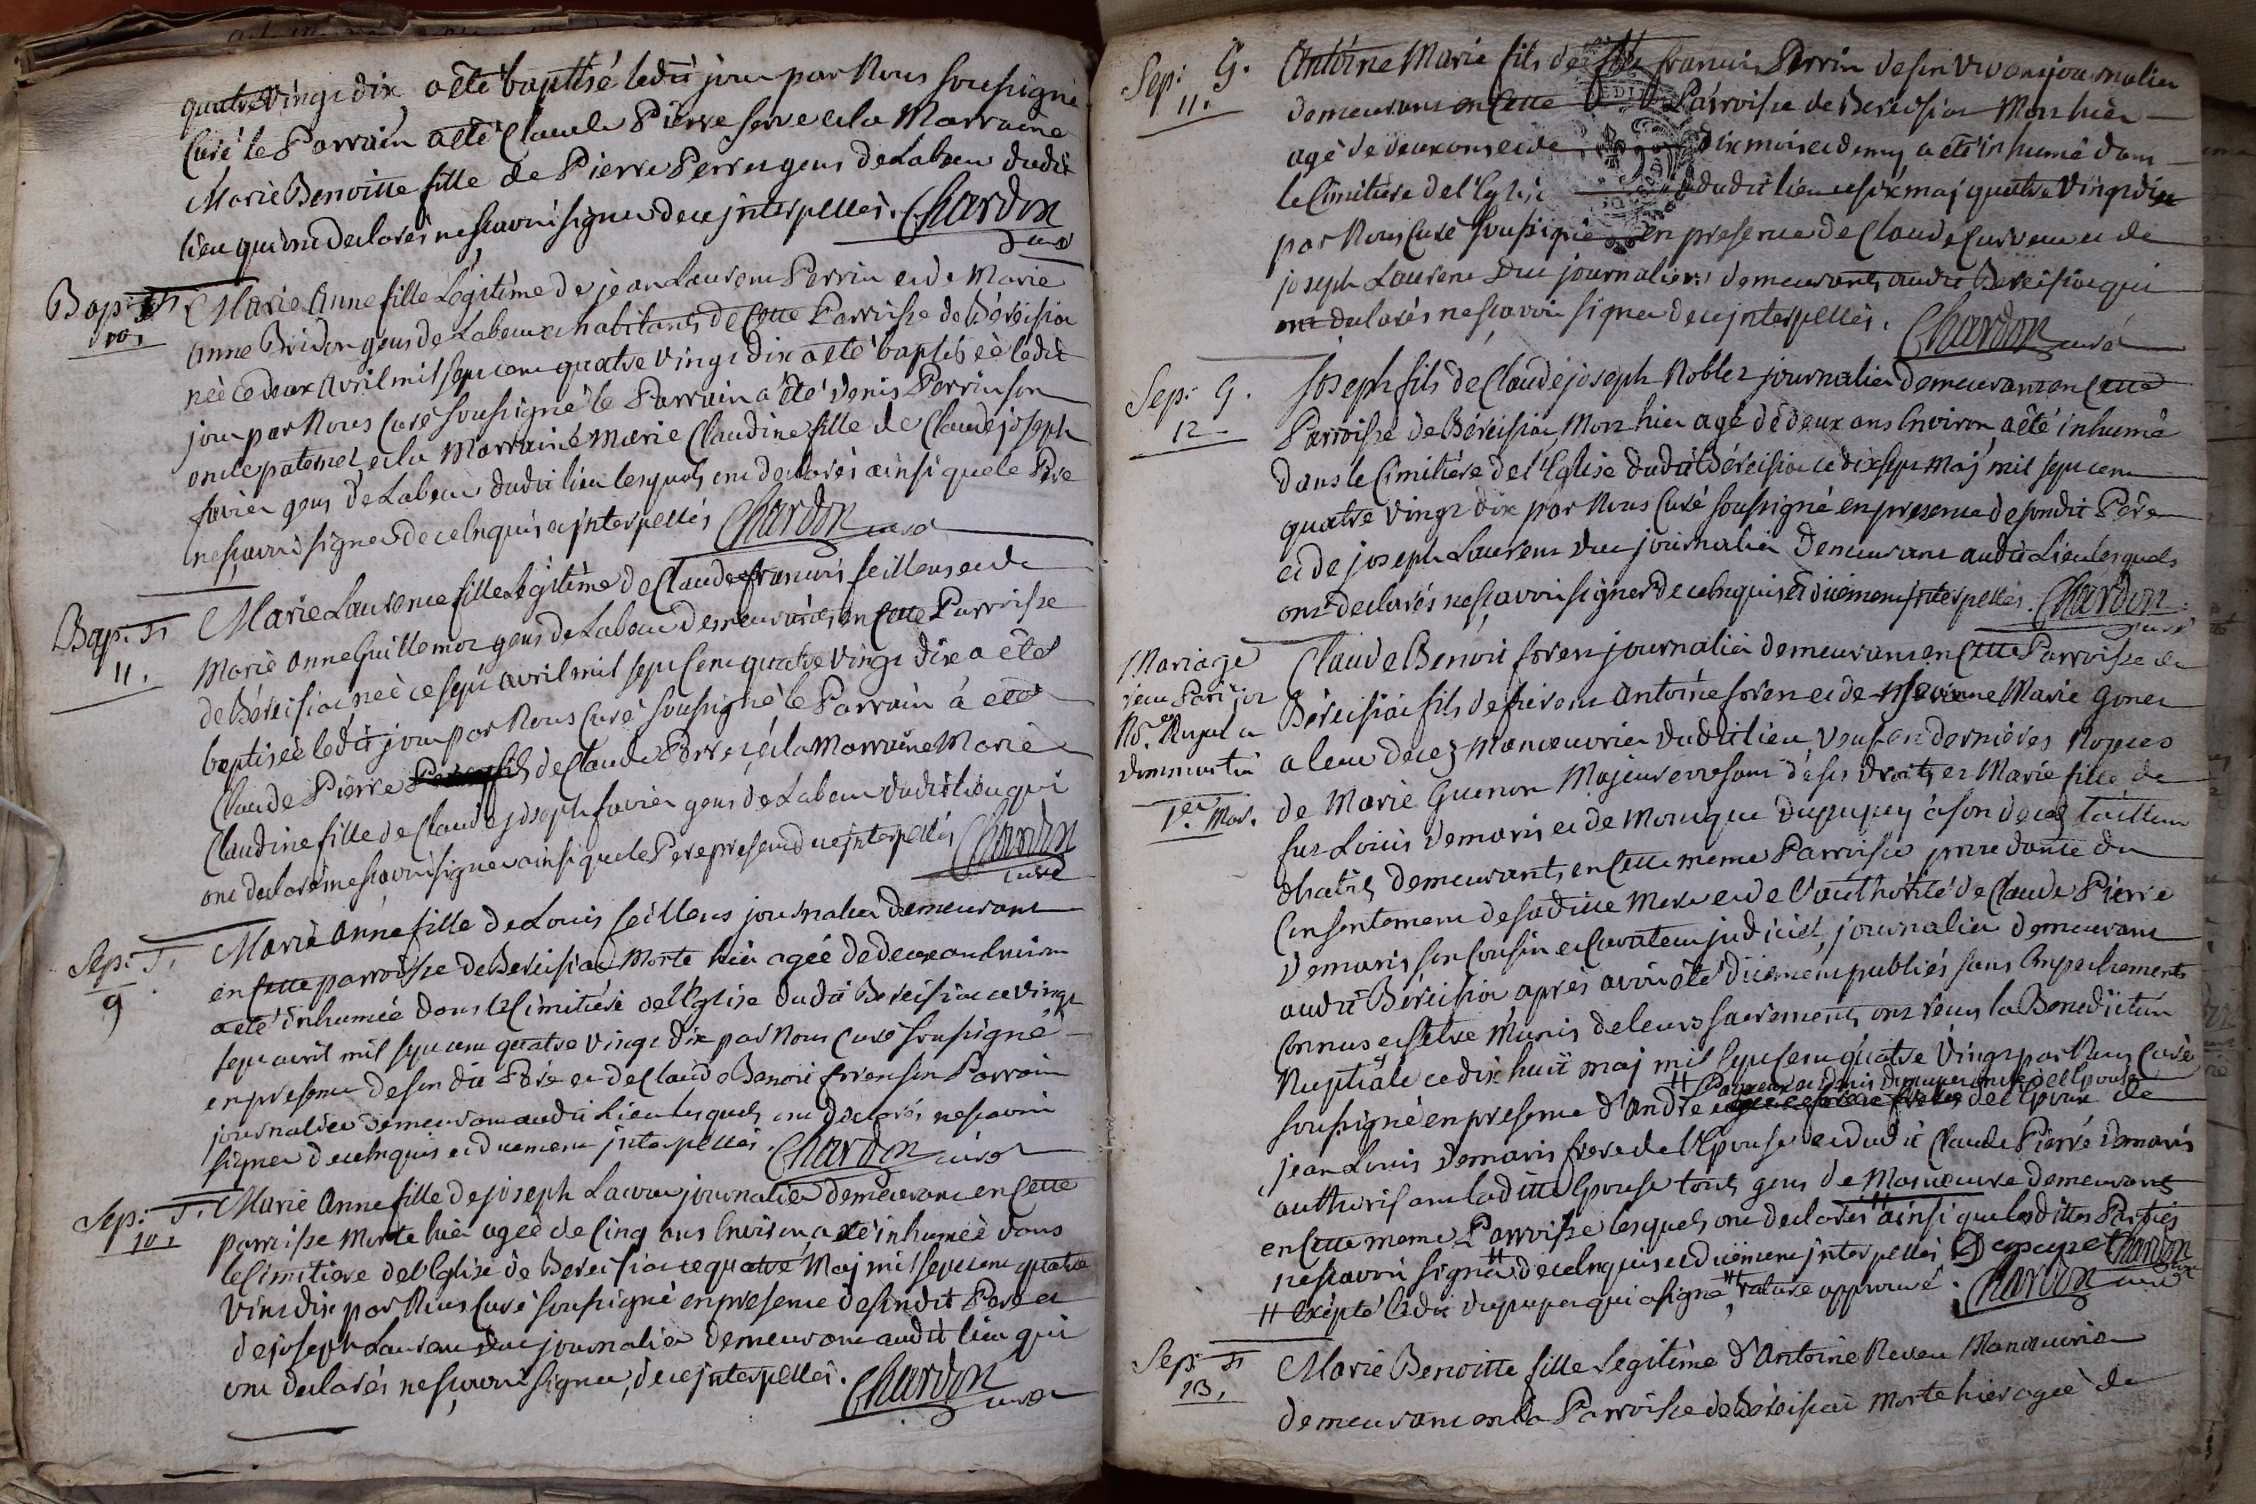 quatre Vingt dix, a été baptisé ledit jour par Nous soussigné
Curé le Parrain a été Claude Pierre et la Marraine
Marie Benoitte fille de Pierre Perret gens de Labeur dudit
lieu qui ont declarés ne scavoir signer de ce jnterpellés. Chardon
curé
Bap: F.
10.
Marie Anne fille Légitime de jean Laurent Perrin et de Marie
Anne Bridon gens de Labeur et habitants de Cette Parroisse de Béreisiat
née ce deux Avril mil sept cent quatre vingt dix a été baptisée ledit
jour par Nous Curé soussigné le Parrain a été denis Perrin son
oncle paternel et la Marraine Marie Claudine fille de Claude joseph
favier gens de Labeur dudit lieu lesquels ont declarés ainsi que le Père
ne scavoir signer de ce Enquis et jnterpellés Chardon curé
Bap. F.
11.
Marie Laurence fille Légitime de Claude francois feillens et de
Marie Anne Guillemot gens de Labeur demeurants en Cette Parroisse
de Béreisiat née ce sept avril mil sept Cent quatre Vingt dix a été
baptisée ledit jour par Nous Curé soussigné le Parrain à été
Claude Pierre fils de Claude Perret et la Marraine Marie
Claudine fille de Claude joseph favier gens de Labeur dudit lieu qui
ont declarés ne scavoir signer ainsi que le Pere present de ce jnterpellés Chardon
curé
Sep: F.
9
Marie Anne fille de Louis feillens journalier demeurant
en Cette parroisse de Bereisiat Morte hier agée de deux ans Environ
a été inhumée dans le Cimitiére de l'Eglise dudit Bereisiat ce vingt
sept avril mil sept cent quatre vingt dix par Nous Curé soussigné
en presence de son dit Père et de Claude Benoit foren son Parrain
journalier demeurant audit Lieu lesquels ont declarés ne scavoir
signer de ce Enquis et duement jnterpellés. Chardon curé
Sep: F.
10.
Marie Anne fille de joseph Lacour journalier demeurant en Cette
parroisse Morte hier agée de Cinq ans Environ a été inhumée dans
le Cimitiere de l'Eglise de Bereisiat ce quatre Maj mil sept cent quatre
Vint dix par Nous Curé soussigné en presence de son dit Pere et
de joseph Laurent Duc journalier demeurant audit lieu qui
ont declarés ne scavoir signer, de ce jnterpellés. Chardon
curé
Sep: G.
11.
Antoine Marie fils de feu francois Perrin de son Vivant journalier
demeurant en Cette Parroisse de Bereisiat Mort hier
agé de deux ans et de dix mois et demy a été inhumé dans
le Cimitiére de l'Eglise dudit lieu ce six maj quatre Vingt dix
par Nous Curé soussigné en presence de Claude et de
joseph Laurent Duc journaliers demeurants audit Bereisiat qui
ont declarés ne scavoir signer de ce jnterpellés. Chardon curé
Sep: G.
12
Joseph fils de Claude joseph Noblet journalier demeurant en Cette
Parroisse de Béreisiat, Mort hier agé de deux ans Environ a été inhumé
dans le Cimitiére de l'Eglise dudit Béreisiat ce dix sept Maj mil sept cent
quatre vingt dix par Nous Curé soussigné en presence de son dit Père
et de joseph Laurent Duc journalier demeurant audit Lieu lesquels
ont declarés ne scavoir signer de ce Enquis et duement jnterpellés. Chardon
curé
Mariage
1er Mar.
Claude Benoit foren journalier demeurant en Cette Parroisse de
Béreisiat fils de Antoine foren et de Marie Gonet
a leur decez Manoeuvrier dudit lieu, Veuf en dernières Nopces
de Marie Guenon Majeur de ses droits et Marie fille de
feu Louis demaris et de Monique Dupupet à son decez tailleur
d'habits demeurants en Cette meme Parroisse du
Consentement de sa ditte Mere et de l'authorité de Claude Pierre
demaris son Cousin et Curateur judiciel, journalier demeurant
audit Béreisiat, aprés avoir été duement publiés sans Empechements
Connus et s'etre Munis de leurs sacrements ont reçus la Benediction
Nuptiale ce dix huit maj mil sept Cent quatre Vingt par Nous Curé
soussigné en presence d'André de l'Epoux de
jean Louis demaris frere de l'Epouse et dudit Claude Pierre demaris
authorisant laditte Epouse tous gens de Manoeuvre demeurants
en Cette meme Parroisse lesquels ont declarés ainsi que lesdittes Parties
ne scavoir signer de ce Enquis et duement jnterpellés Dupupet Chardon
# Exépté ledit dupupet qui a signé, rature approuvé. Chardon curé
Sep: F.
13.
Marie Benoitte fille Legitime d'Antoine Manoeuvrier
demeurant en la Parroisse de Béreisiat Morte hier agée de